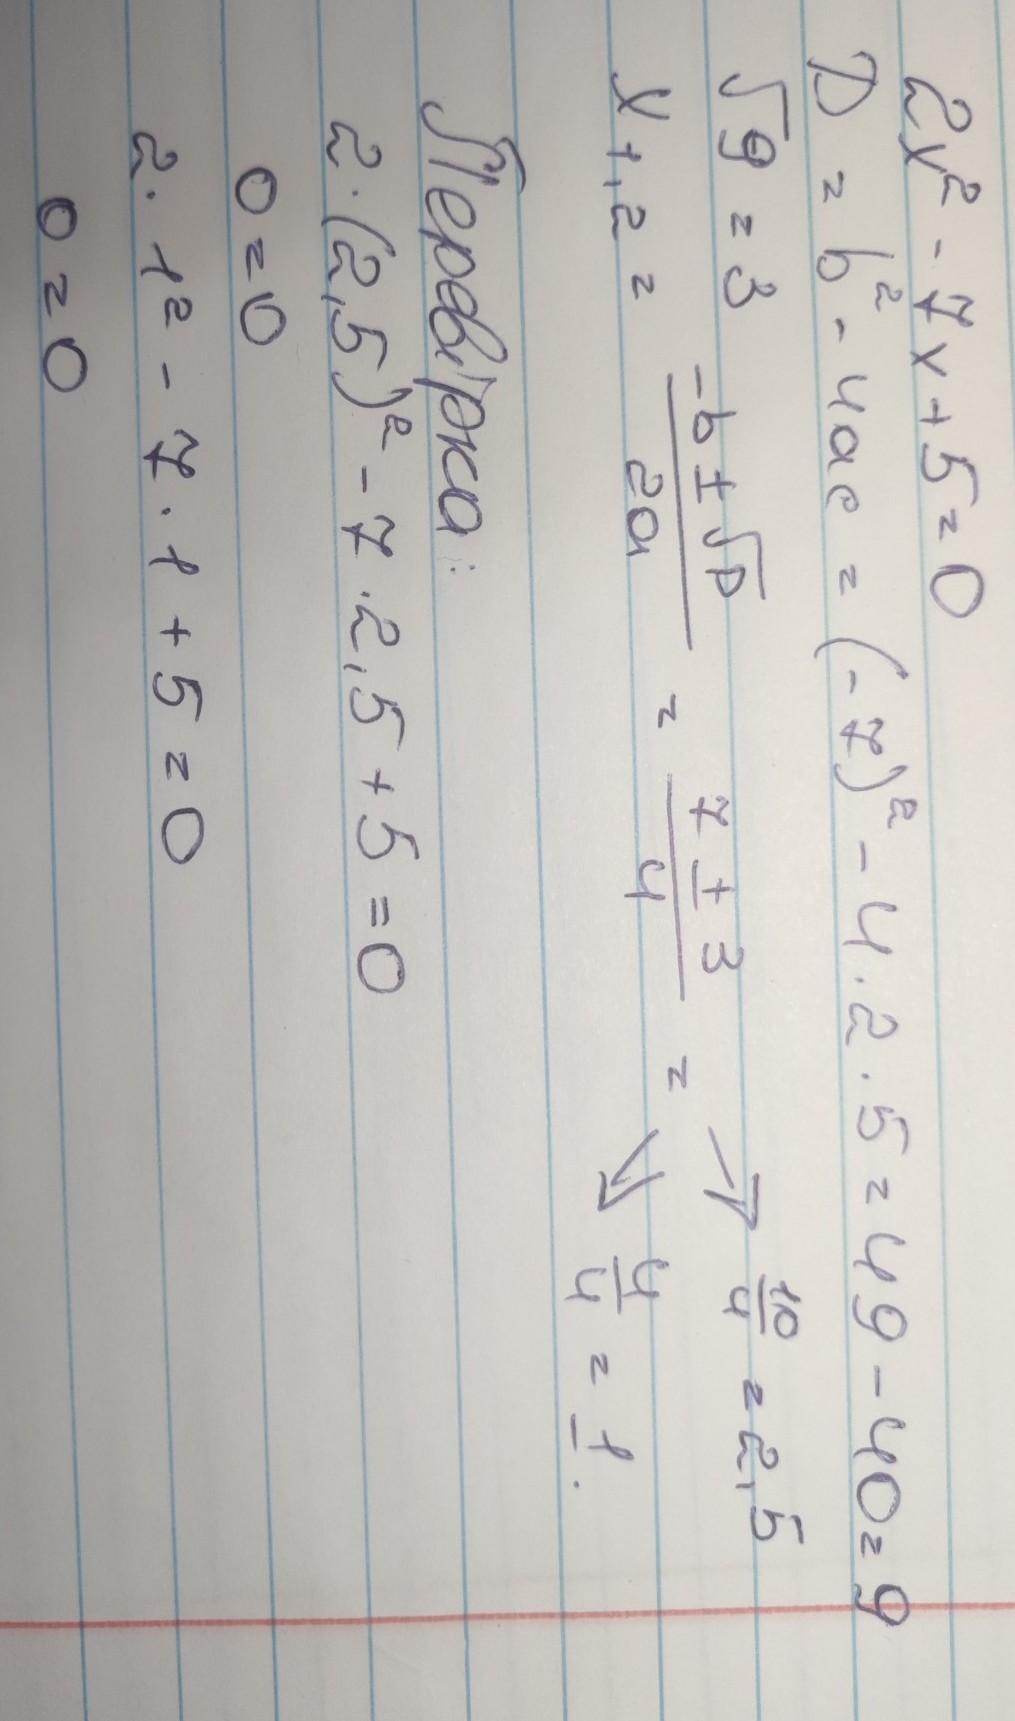 2x² - 7x + 5 = 0
D = b² - 4ac = (-7)² - 4 · 2 · 5 = 49 - 40 = 9
√9 = 3
x1,2 = (-b ± √D)/(2a) = (7 ± 3)/4 = ↗ 10/4 = 2,5
↘ 4/4 = 1.
Перевірка:
2 · (2,5)² - 7 · 2,5 + 5 = 0
0 = 0
2 · 1² - 7 · 1 + 5 = 0
0 = 0